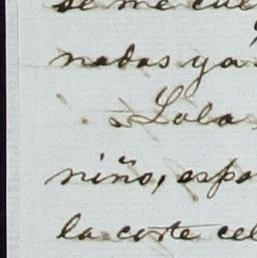 se me cue
nadas ya
a Lola
niño, espo
la corte cel